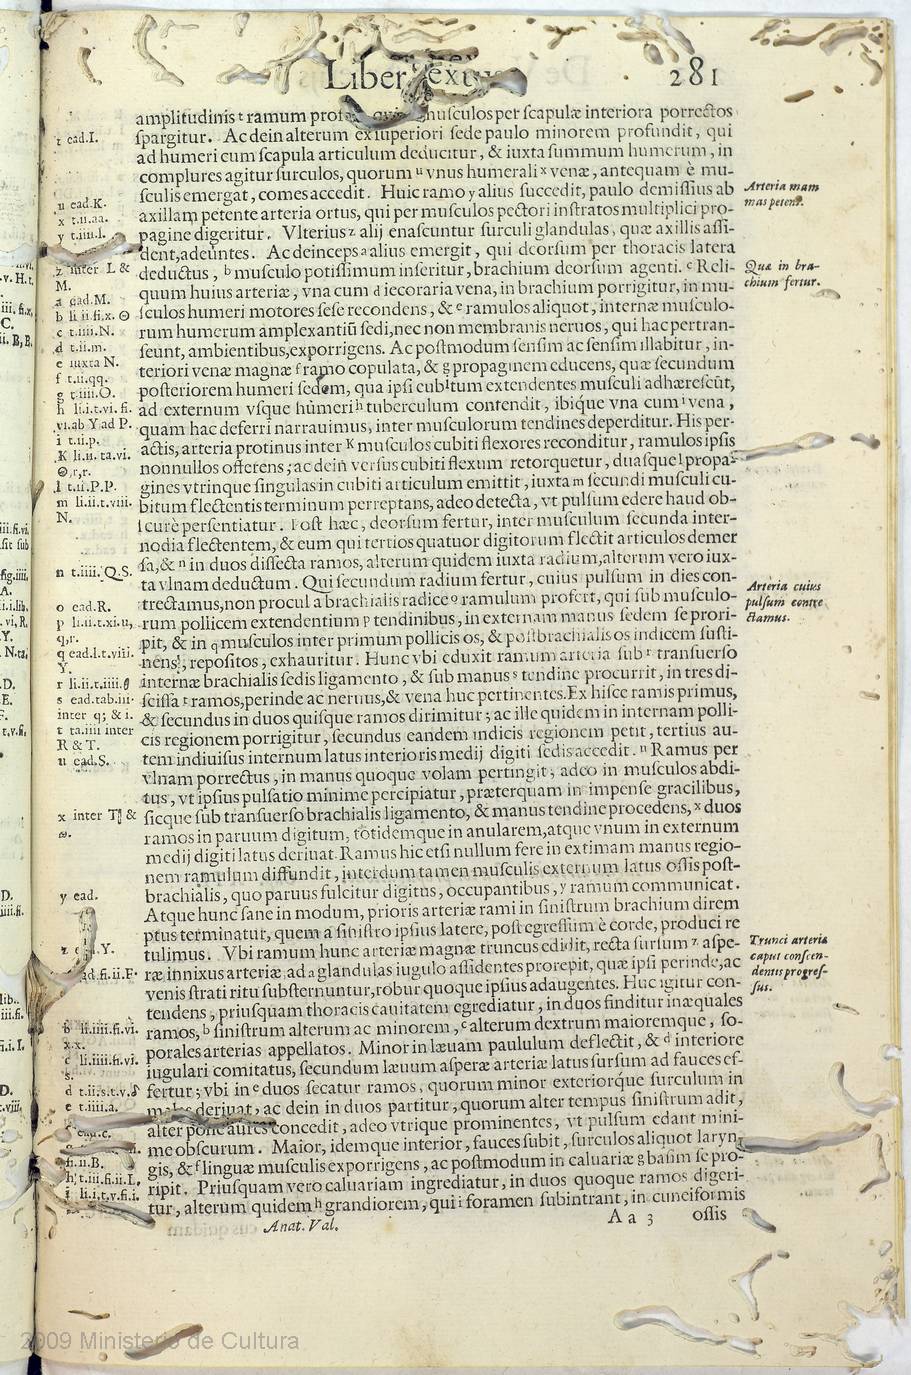 Liber sextus 281
amplitudinis t ramum musculos per scapulæ interiora porrectos
spargitur. Ac dein alterum ex superiori sede paulo minorem profundit, qui
ad humeri cum scapula articulum deducitur, & iuxta summum humerum, in
complures agitur surculos, quorum u vnus humerali x venæ, antequam è mu-
sculis emergat, comes accedit. Huic ramo y alius succedit, paulo demissius ab
axillam petente arteria ortus, qui per musculos pectori instratos multiplici pro-
pagine digeritur. Vlterius z alij enascuntur surculi glandulas, quæ axillis assi-
dent, adeuntes. Ac deinceps a alius emergit, qui deorsum per thoracis latera
deductus, b musculo potissimum inseritur, brachium deorsum agenti. c Reli-
quum huius arteriæ, vna cum d iecoraria vena, in brachium porrigitur, in mu-
sculos humeri motores sese recondens, & e ramulos aliquot, internæ musculo-
rum humerum amplexantiū sedi, nec non membranis neruos, qui hac pertran-
seunt, ambientibus, exporrigens. Ac postmodum sensim ac sensim illabitur, in-
teriori venæ magnæ f ramo copulata, & g propaginem educens, quæ secundum
posteriorem humeri sedem, qua ipsi cubitum extendentes musculi adhærescūt,
ad externum vsque humeri h tuberculum contendit, ibique vna cum i vena,
quam hac deferri narrauimus, inter musculorum tendines deperditur. His per-
actis, arteria protinus inter K musculos cubiti flexores reconditur, ramulos ipsis
nonnullos offerens; ac dein versus cubiti flexum retorquetur, duasque l propa-
gines vtrinque singulas in cubiti articulum emittit, iuxta m secundi musculi cu-
bitum flectentis terminum perreptans, adeo detecta, vt pulsum edere haud ob-
scurè persentiatur. Post hæc, deorsum fertur, inter musculum secunda inter-
nodia flectentem, & eum qui tertios quatuor digitorum flectit articulos demer
sa, & n in duos dissecta ramos, alterum quidem iuxta radium, alterum vero iux-
ta vlnam deductum. Qui secundum radium fertur, cuius pulsum in dies con-
trectamus, non procul a brachialis radice o ramulum profert, qui sub musculo-
rum pollicem extendentium p tendinibus, in externam manus sedem se prori-
pit, & in q musculos inter primum pollicis os, & postbrachialis os indicem susti-
nens, repositos, exhauritur. Hunc vbi eduxit ramum arteria sub r transuerso
internæ brachialis sedis ligamento, & sub manus s tendine procurrit, in tres di-
scissa t ramos, perinde ac neruus, & vena huc pertinentes. Ex hisce ramis primus,
& secundus in duos quisque ramos dirimitur; ac ille quidem in internam polli-
cis regionem porrigitur, secundus eandem indicis regionem petit, tertius au-
tem indiuisus internum latus interioris medij digiti sedis accedit. u Ramus per
vlnam porrectus, in manus quoque volam pertingit, adeo in musculos abdi-
tus, vt ipsius pulsatio minime percipiatur, præterquam in impense gracilibus,
sicque sub transuerso brachialis ligamento, & manus tendine procedens, x duos
ramos in paruum digitum, totidemque in anularem, atque vnum in externum
medij digiti latus deriuat. Ramus hic etsi nullum fere in extimam manus regio-
nem ramulum diffundit, interdum tamen musculis externum latus ossis post-
brachialis, quo paruus fulcitur digitus, occupantibus, y ramum communicat.
Atque hunc sane in modum, prioris arteriæ rami in sinistrum brachium direm
ptus terminatur, quem a sinistro ipsius latere, post egressum è corde, produci re
tulimus. Vbi ramum hunc arteriæ magnæ truncus edidit, recta sursum z aspe-
ræ innixus arteriæ, ad a glandulas iugulo assidentes prorepit, quæ ipsi perinde, ac
venis strati ritu substernuntur, robur quoque ipsius adaugentes. Huc igitur con-
tendens, priusquam thoracis cauitatem egrediatur, in duos finditur inæquales
ramos, b sinistrum alterum ac minorem, c alterum dextrum maioremque, so-
porales arterias appellatos. Minor in læuam paululum deflectit, & d interiore
iugulari comitatus, secundum læuum asperæ arteriæ latus sursum ad fauces ef-
fertur; vbi in e duos secatur ramos, quorum minor exteriorque surculum in
malas deriuat, ac dein in duos partitur, quorum alter tempus sinistrum adit,
alter pone aures concedit, adeo vtrique prominentes, vt pulsum edant mini-
me obscurum. Maior, idemque interior, fauces subit, surculos aliquot laryn-
gis, & f linguæ musculis exporrigens, ac postmodum in caluariæ g basim se pro-
ripit. Priusquam vero caluariam ingrediatur, in duos quoque ramos digeri-
tur, alterum quidem h grandiorem, qui i foramen subintrant, in cuneiformis
Anat. Val. A a 3 ossis
t ead. I.
u ead. K.
x t.ii.aa.
y t.iiii.l.
z inter L &
M.
a ead. M.
b li.ii.fi.x. Θ
c t.iiii.N.
d t.ii.m.
e iuxta N.
f t.ii.qq.
g t.iiii.O.
h li.i.t.vi.fi.
vi.ab Y ad P.
i t.ii.p.
K li.ii.ta.vi.
Θ,r,r.
l t.ii.P.P.
m li.ii.t.viii.
N.
n t.iiii.Q.S.
o ead. R.
p li.ii.t.xi.u,
q,r.
q ead.l.t.viii.
Y.
r li.ii.t.iiii.θ
s ead.tab.iii.
inter q; & i.
t ta.iiii inter
R & T.
u ead. S.
x inter T &
ω.
y ead.
ad.fi.ii.F.
b li.iiii.fi.vi.
x.x.
c li.iiii.fi.vi.
s.
d t.ii.s.t.v.
e t.iiii.a.
fi.ii.B.
h t.iii.fi.ii.L,
i li.i.t.v.fi.i.
Arteria mam
mas petens.
Quæ in bra-
chium fertur.
Arteria cuius
pulsum contre
ctamus.
Trunci arteriæ
caput conscen-
dentis progres-
sus.
2009 Ministerio de Cultura